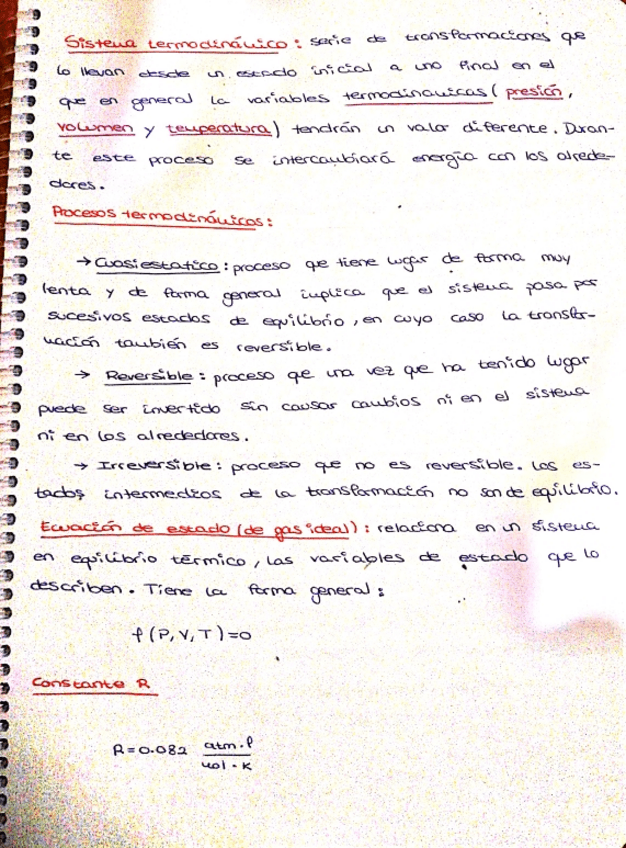 Sistema termodinámico: serie de transformaciones que
lo llevan desde un estado inicial a uno final en el
que en general la variables termodinámicas (presión,
volumen y temperatura) tendrán un valor diferente. Duran-
te este proceso se intercambiará energía con los alrede-
dores.
Procesos termodinámicos:
→ Cuasiestatico: proceso que tiene lugar de forma muy
lenta y de forma general implica que el sistema pasa por
sucesivos estados de equilibrio, en cuyo caso la transfor-
mación también es reversible.
→ Reversible: proceso que una vez que ha tenido lugar
puede ser invertido sin causar cambios ni en el sistema
ni en los alrededores.
→ Irreversible: proceso que no es reversible. Los es-
tados intermedios de la transformación no son de equilibrio.
Ecuación de estado (de gas ideal): relaciona en un sistema
en equilibrio térmico, las variables de estado que lo
describen. Tiene la forma general:
f(P,V,T)=0
Constante R
R=0.082 atm·l / mol·K